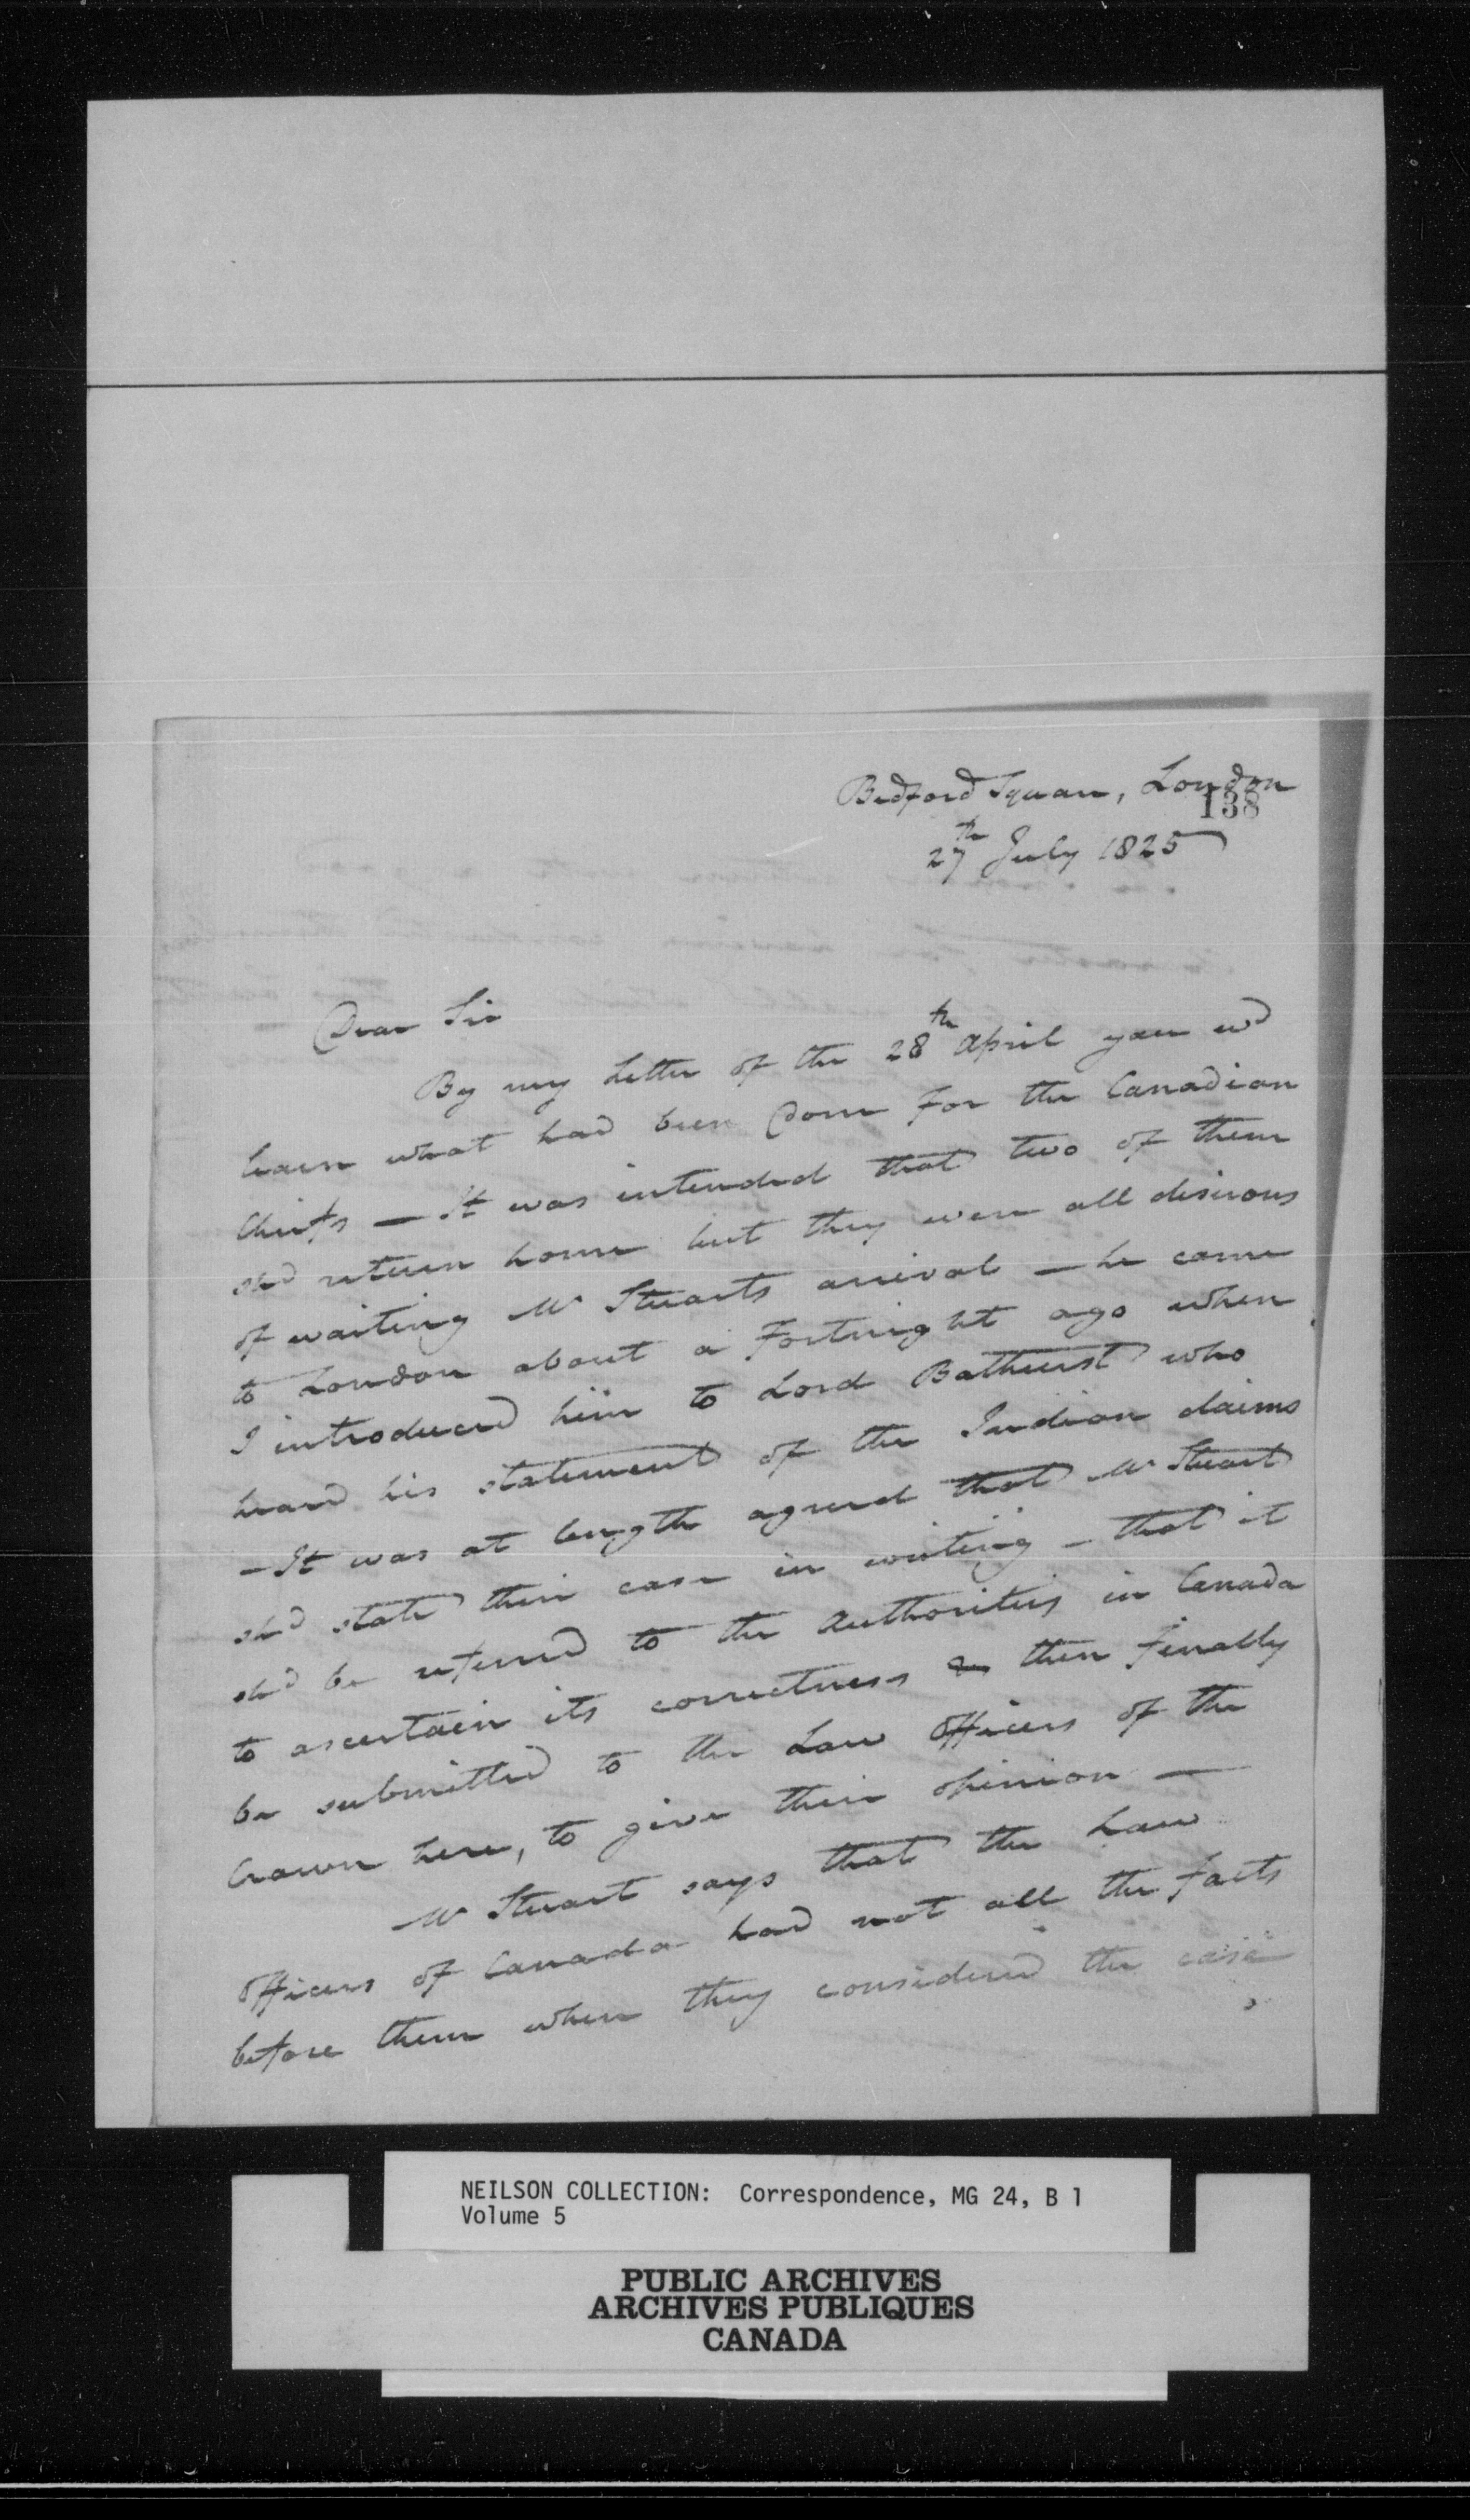 Bedford Square, London
138
27th July 1825
Dear Sir
By my Letter of the 28th April you wd
learn what had been done for the Canadian
Chiefs — It was intended that two of them
shd return home but they were all desirous
of waiting Mr Stuarts arrival — he came
to London about a Fortnight ago when
I introduced him to Lord Bathurst who
heard his statement of the Indian claims
— It was at length agreed that Mr Stuart
shd state their case in writing — that it
shd be referred to the Authorities in Canada
to ascertain its correctness & then finally
be submitted to the Law Officers of the
Crown here, to give their opinion —
Mr Stuart says that the Law
Officers of Canada had not all the facts
before them when they considered the case
NEILSON COLLECTION: Correspondence, MG 24, B 1
Volume 5
PUBLIC ARCHIVES
ARCHIVES PUBLIQUES
CANADA